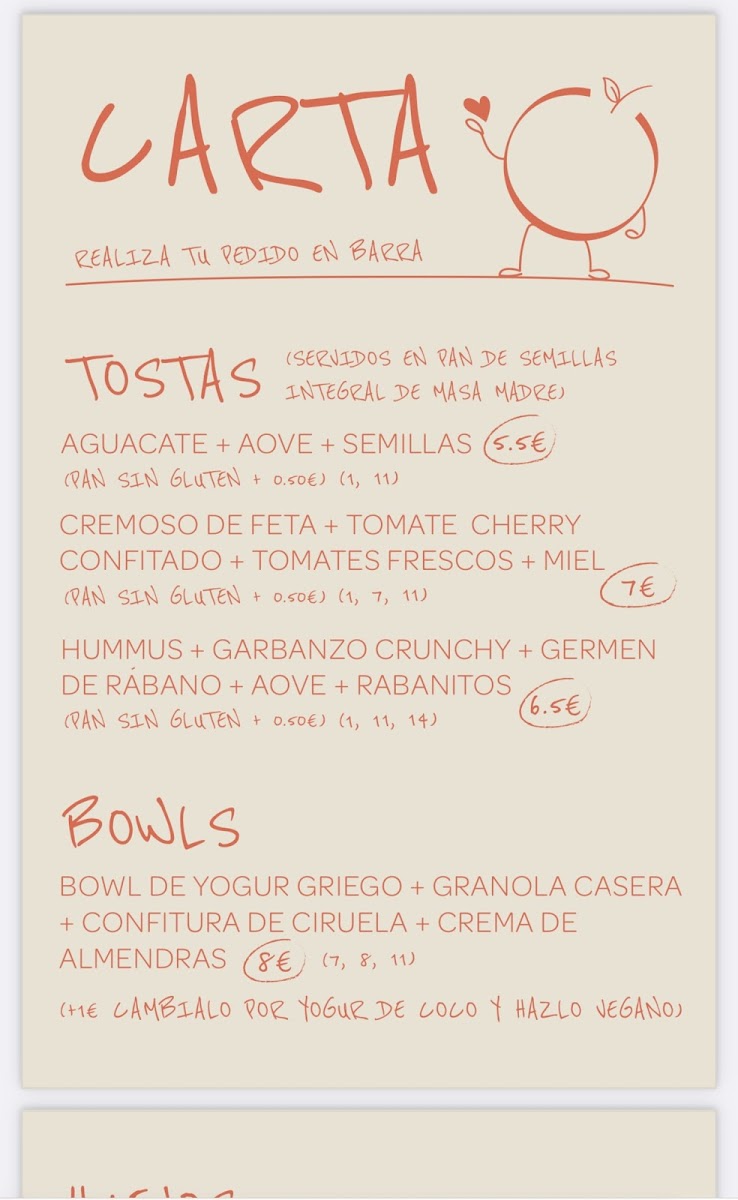 CARTA
REALIZA TU PEDIDO EN BARRA
TOSTAS (SERVIDOS EN PAN DE SEMILLAS
INTEGRAL DE MASA MADRE)
AGUACATE + AOVE + SEMILLAS 5.5€
(PAN SIN GLUTEN + 0.50€) (1, 11)
CREMOSO DE FETA + TOMATE CHERRY
CONFITADO + TOMATES FRESCOS + MIEL
7€
(PAN SIN GLUTEN + 0.50€) (1, 7, 11)
HUMMUS + GARBANZO CRUNCHY + GERMEN
DE RÁBANO + AOVE + RABANITOS
6.5€
(PAN SIN GLUTEN + 0.50€) (1, 11, 14)
BOWLS
BOWL DE YOGUR GRIEGO + GRANOLA CASERA
+ CONFITURA DE CIRUELA + CREMA DE
ALMENDRAS 8€ (7, 8, 11)
(+1€ CAMBIALO POR YOGUR DE COCO Y HAZLO VEGANO)